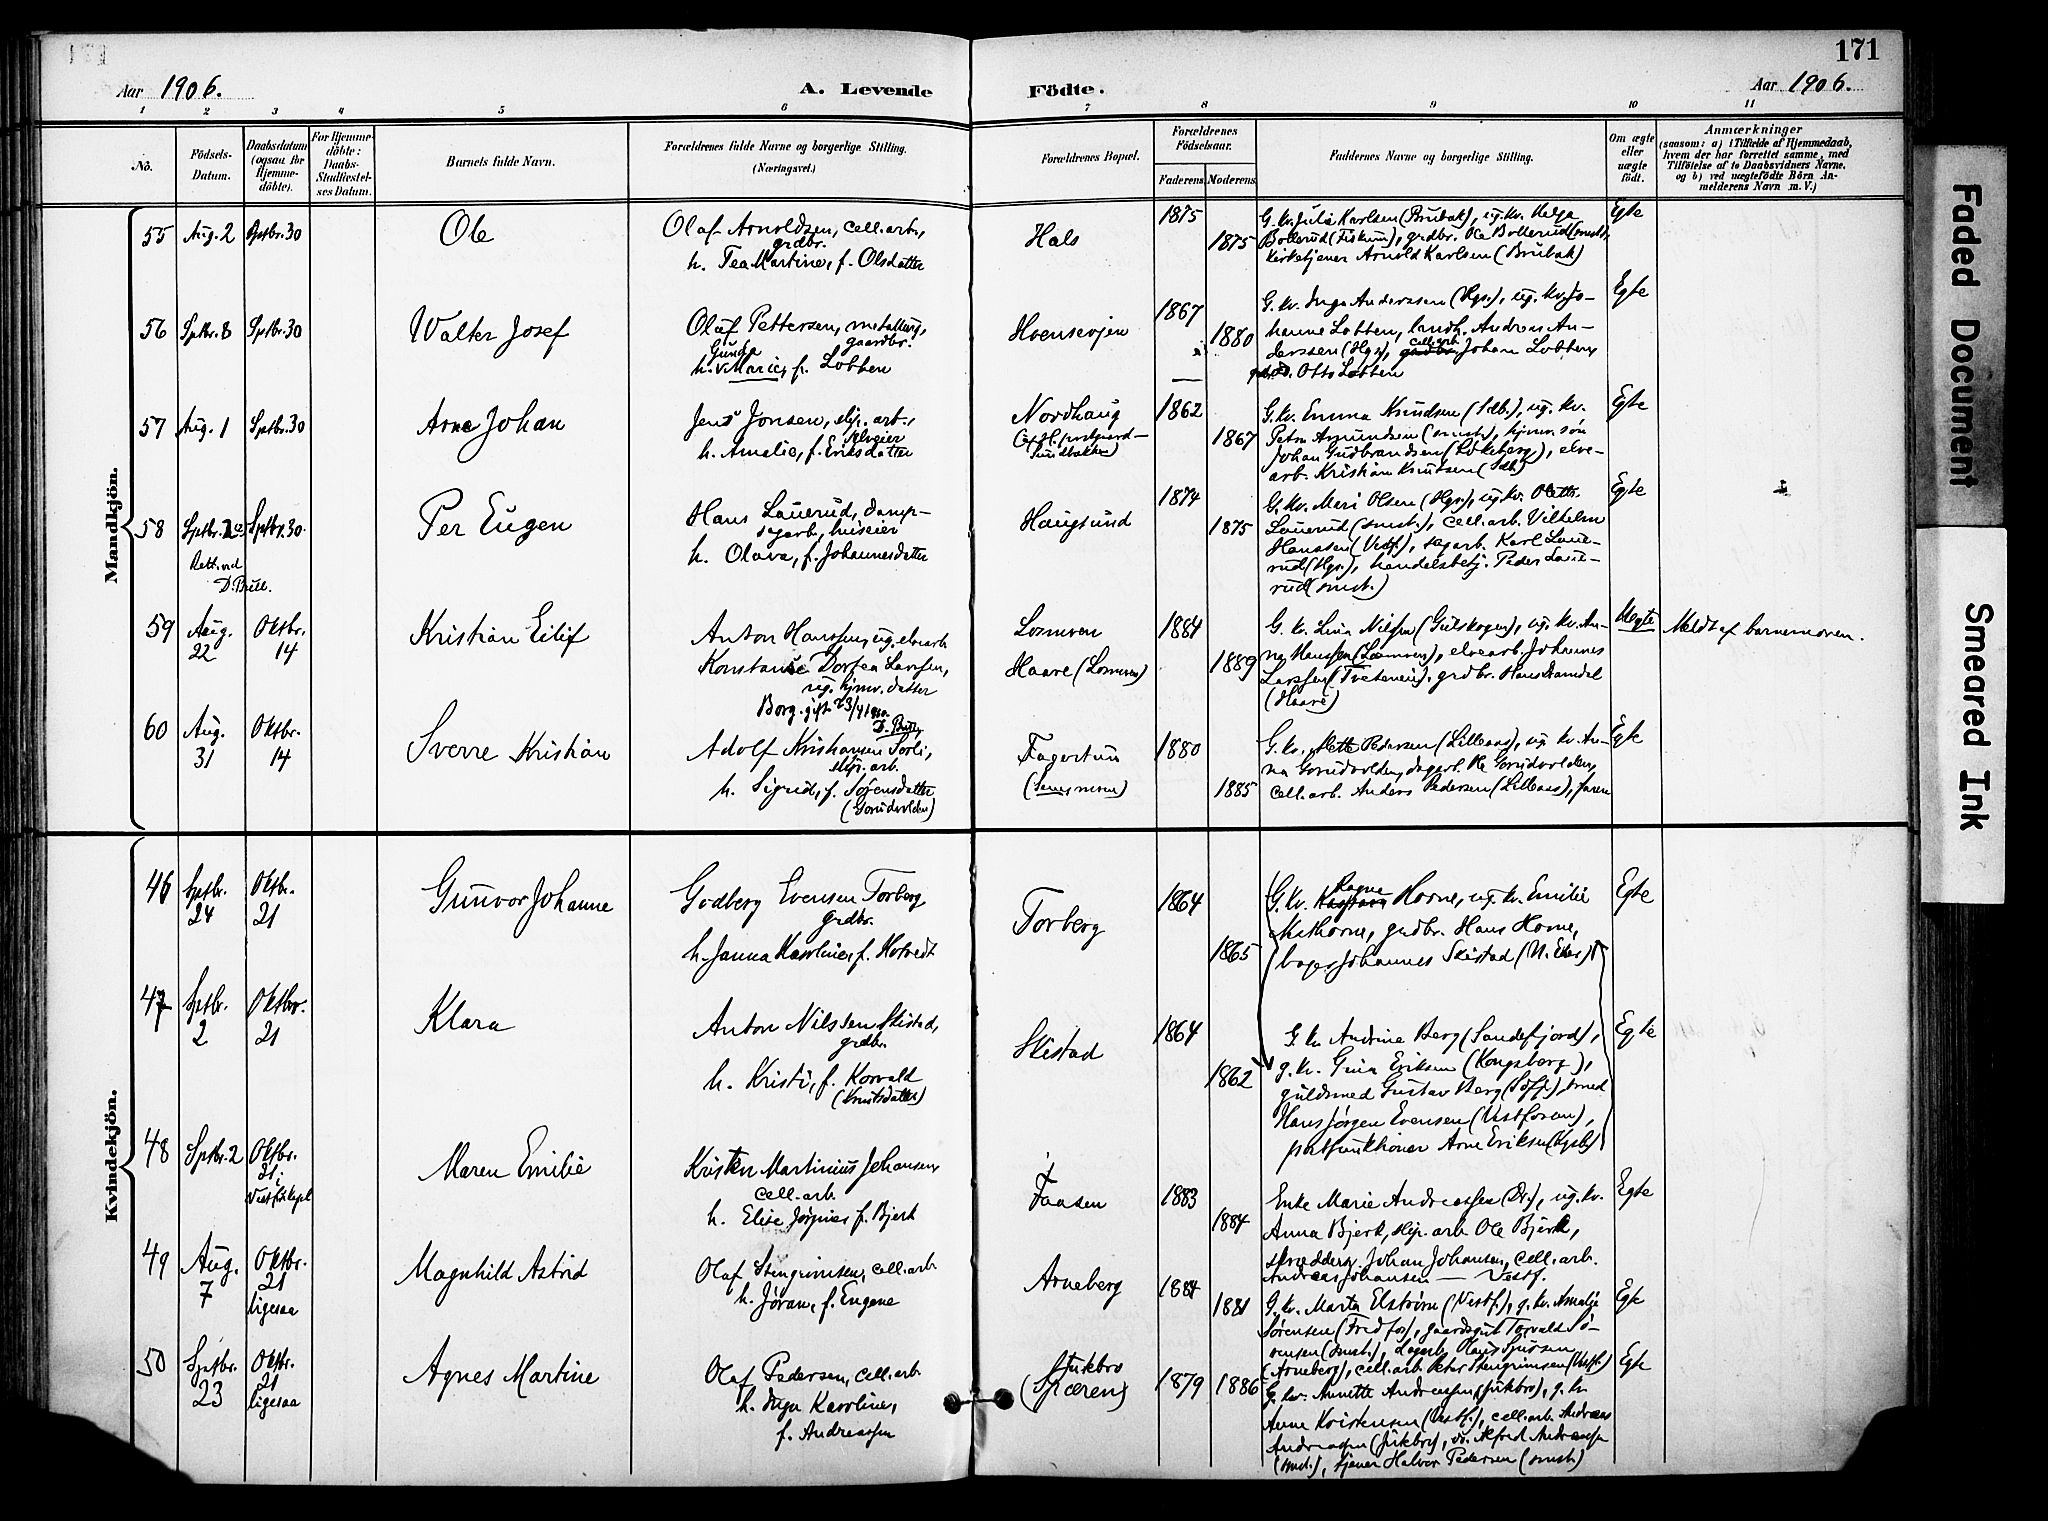 171
Aar 1906.
A. Levende Födte.
Aar 1906.
1 2 3 4 5 6 7 8 9 10 11
No.
Födsels-Datum.
Daabsdatum (ogsaa for Hjemme-döbte).
For Hjemme-döbte: Daabs-Stadfæstel-ses Datum.
Barnets fulde Navn.
Forældrenes fulde Navne og borgerlige Stilling.
(Næringsvei.)
Forældrenes Bopæl.
Forældrenes Födselsaar.
Faderens. Moderens.
Faddernes Navne og borgerlige Stilling.
Om ægte eller uægte födt.
Anmærkninger
(saasom: a) i Tilfælde af Hjemmedaab, hvem der har forrettet samme, med Tilföielse af to Daabsvidners Navne, og b) ved uægtefödte Börn An-melderens Navn m. V.)
Mandkjön.
55 Aug. 2 Sptbr. 30 Ole
Olaf Arnoldsen, cell. arb.,
grdbr.
h. Tea Martine, f. Olsdatter
Hals 1875 1875
G. kv. Julie Karlsen (Brubak), ug. kv. Helga
Bollerud (Fiskum), grdbr. Ole Bollerud (smst.),
kirketjener Arnold Karlsen (Brubak)
Egte
56 Sptbr. 8 Sptbr. 30 Walter Josef
Olaf Pettersen,
gaardbr.
Gunda
h. Marie, f. Lobben
Hoensvejen 1867 1880
G. kv. Inga Anderssen (Hgs.), ug. kv. Jo-
hanne Lobben, landh. Andreas An-
derssen (Hgs), cell. arb. Johan Lobben,
Otto Lobben
Egte
57 Aug. 1 Sptbr. 30 Arne Johan
Jens Jonsen, slip. arb.,
h. Amalie, f. Eriksdatter
Nordhaug
1862 1867
G. kv. Emma Knudsen (Sdb.), ug. kv.
Petra Amundsen (smst.), hjmv. søn
Johan Gudbrandsen (Lokeberg), elve-
arb. Kristian Knudsen (Sdb.)
Egte
58 Sptbr. Sptbr. 30 Per Eugen
Rett. ved
D. Brill.
Hans Lauerud, damp-
sagarb., huseier
h. Olava, f. Johannesdatter
Haugsund 1874 1875
G. kv. Mari Olsen (Hgs), ug. kv. Olette
Lauerud (smst.), cell. arb. Vilhelm
Hanssen (Vestf.), sagarb. Karl Laue-
rud (Hgs), handelsbetj. Peder Laue-
rud (smst.)
Egte
59 Aug. 22 Oktbr. 14 Kristian Eilif
Anton Hanssen, ug. elvearb.
Konstanse Dortea Larssen,
ug. hjmv. datter
Losmoen
Haare (Losmoen)
1884 1889
G. kv. Lina Nilsen (Gulskogen), ug. kv. An-
na Hanssen (Losmoen), elvearb. Johannes
Larssen (Tveteneie), grdbr. Hans Ramdal
(Haare)
Uegte
Meldt af barnemoren.
60 Aug. 31 Oktbr. 14 Sverre Kristian
Borg. gift 23/4
Adolf Kristiansen Sorli,
slip. arb.
h. Sigrid, f. Sørensdatter
(Gorudvolden)
Fagertun
(Semsmoen)
1880 1885
G. kv. Mette Pedersen (Lilleaas), ug. kv. An-
na Gorudvolden, dagarb. Ole Gorudvolden,
cell. arb. Anders Pedersen (Lilleaas), faren
Egte
Kvindekjön.
46 Sptbr. 24 Oktbr. 21 Gunvor Johanne
Godberg Evensen Torberg
grdbr.
h. Janna Karoline, f. Hotvedt
Torberg 1864 1865
G. kv. Ragna Horne, ug. kv. Emilie
Methorne, grdbr. Hans Horne,
bager Johannes Skistad (N. Eker)
Egte
47 Sptbr. 2 Oktbr. 21 Klara
Anton Nilssen Skistad,
grdbr.
h. Kristi, f. Korvald
(Knutsdatter)
Skistad 1864 1862
G. kv. Andrine Berg (Sandefjord),
g. kv. Gina Eriksen (Kongsberg),
guldsmed Gustav Berg (Sdfj.), smed
Hans Jørgen Evensen (Vestfossen),
postfunktionær Arne Eriksen (Kgsb.)
Egte
48 Sptbr. 2 Oktbr. 21 i Vestf. kapel Maren Emilie
Kristen Martinius Johansen
cell. arb.
h. Elise Jørgine, f. Bjerk
Faasen 1883 1884
Enke Marie Andreassen (Dr.), ug. kv.
Anna Bjerk, slip. arb. Ole Bjerk,
skrædderg. Johan Johansen, cell. arb.
Andreas Johansen — Vestf.
Egte
49 Aug. 7 Oktbr. 21 ligesaa Magnhild Astrid
Olaf Stengrimsen, cell. arb.
h. Jøran, f. Eugene
Arneberg 1884 1881
G. kv. Marta Elstrøm (Vestf.), g. kv. Amalie
Sørensen (Fredfos), gaardsgut Torvald Sø-
rensen (smst.), Hans
(Arneberg), cell. arb. Peter Stengrimsen (Vestf.)
Egte
50 Sptbr. 23 Oktbr. 21 ligesaa Agnes Martine
Olaf Pedersen, cell. arb.
h. Inga Karoline,
f. Andreassen
Jukbro
1879 1886
G. kv. Annette Andreassen (Jukbro), g. kv.
Anne Kristensen (Vestf.), cell. arb. Andreas
Andreassen (Jukbro), Alfred Andreassen
(smst.), tjener Halvor Pedersen (smst.)
Egte
Faded Document
Smeared Ink